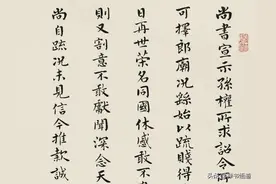 尚書宣示孫權所求詔令所
可擇郎廟況繇始以疏賤得
日再世榮名同國休感敢不
則又割意不敢獻聞深念天
尚自疏況未見信今推款誠